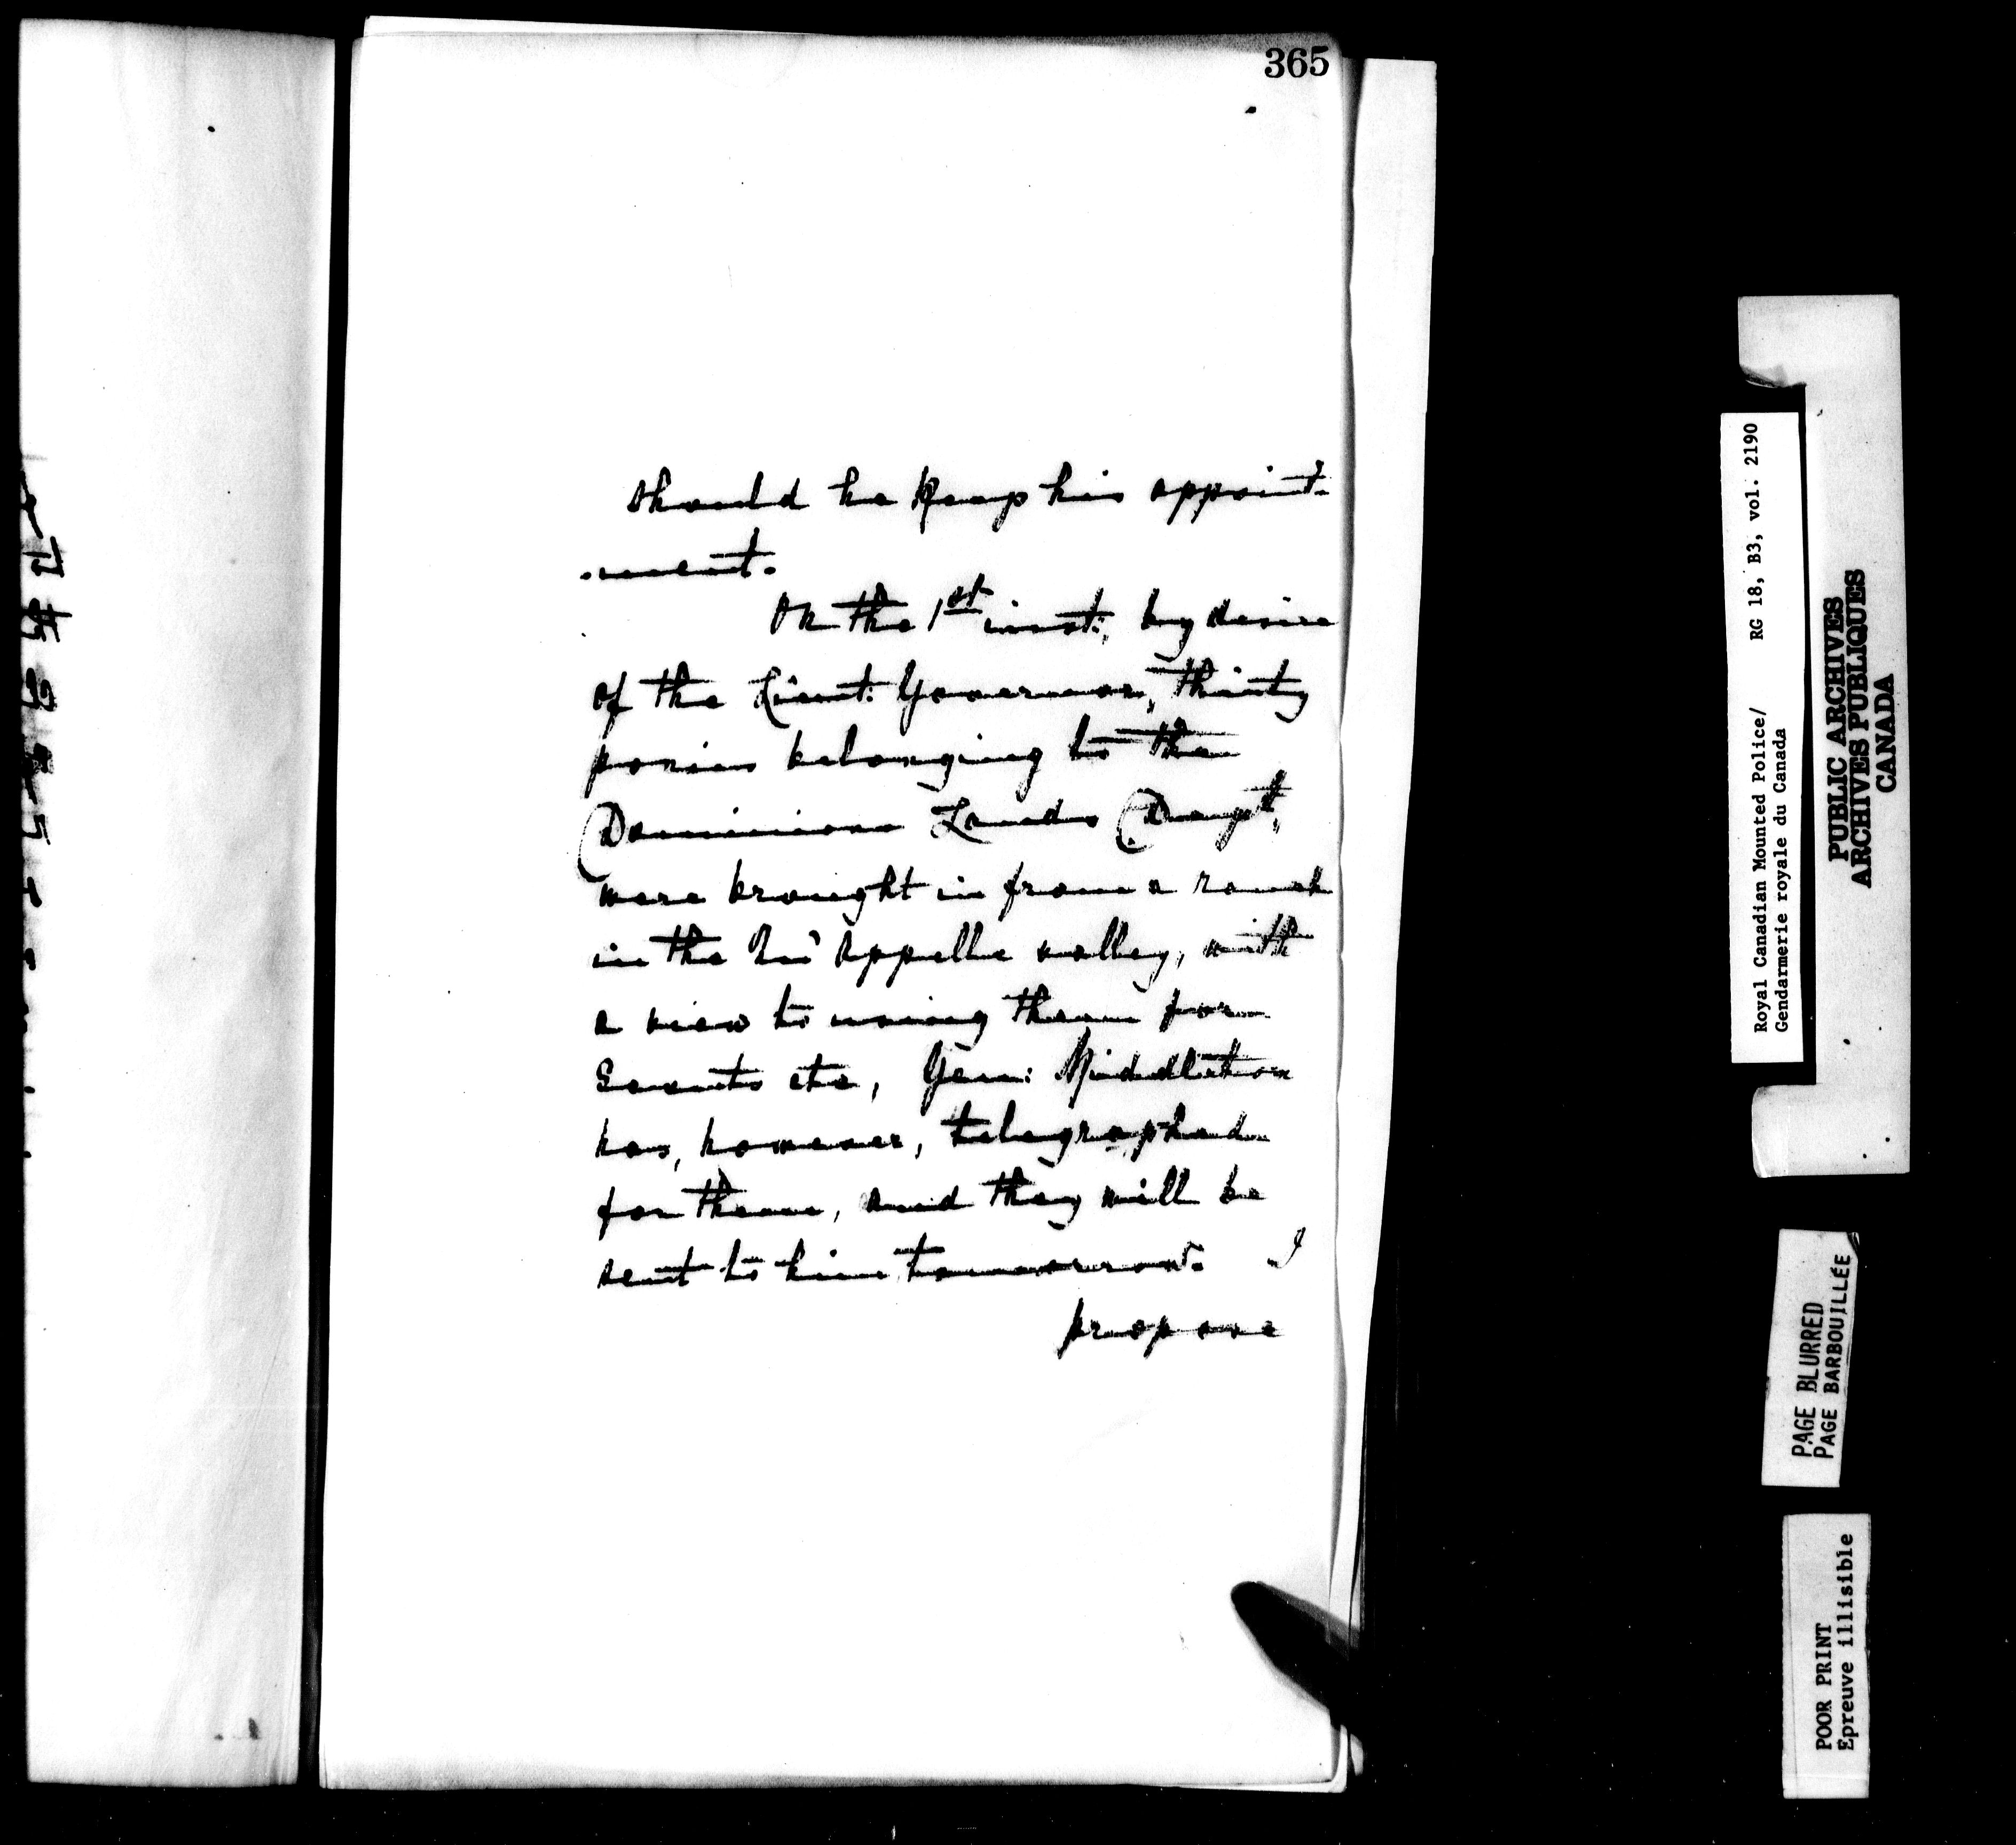 365
should he keep his appoint-
-ment.
On the 1st inst: by desire
of the Lieut: Governor, thirty
ponies belonging to the
Dominion Lands Dept,
were brought in from a ranch
in the Qu'Appelle valley, with
a view to using them for
Scouts etc, Gen: Middleton
has, however, telegraphed
for them, and they will be
sent to him tomorrow. I
propose
Royal Canadian Mounted Police/ RG 18, B3, vol. 2190
Gendarmerie royale du Canada
PUBLIC ARCHIVES
ARCHIVES PUBLIQUES
CANADA
PAGE BLURRED
PAGE BARBOUILLÉE
POOR PRINT
Épreuve illisible